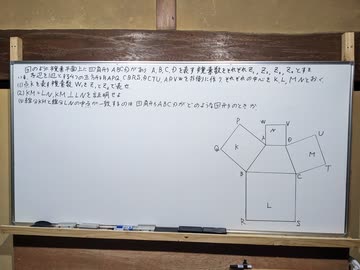 図のように複素平面上に四角形ABCDがあり A,B,C,Dを表す複素数をそれぞれ Z₁, Z₂, Z₃, Z₄とする
いま、各辺を1辺とする4つの正方形BAPQ, CBRS, DCTU, ADVWを外側に作り それぞれの中心を K, L, M, Nとおく
(1) 点Kを表す複素数 W₁を Z₁とZ₂で表せ
(2) KM=LN, KM⊥LNを証明せよ
(3) 線分KMと線分LNの中点が一致するのは四角形ABCDがどのような図形のときか
W
V
P
N
A
D
U
Q
K
M
T
B
C
L
R
S